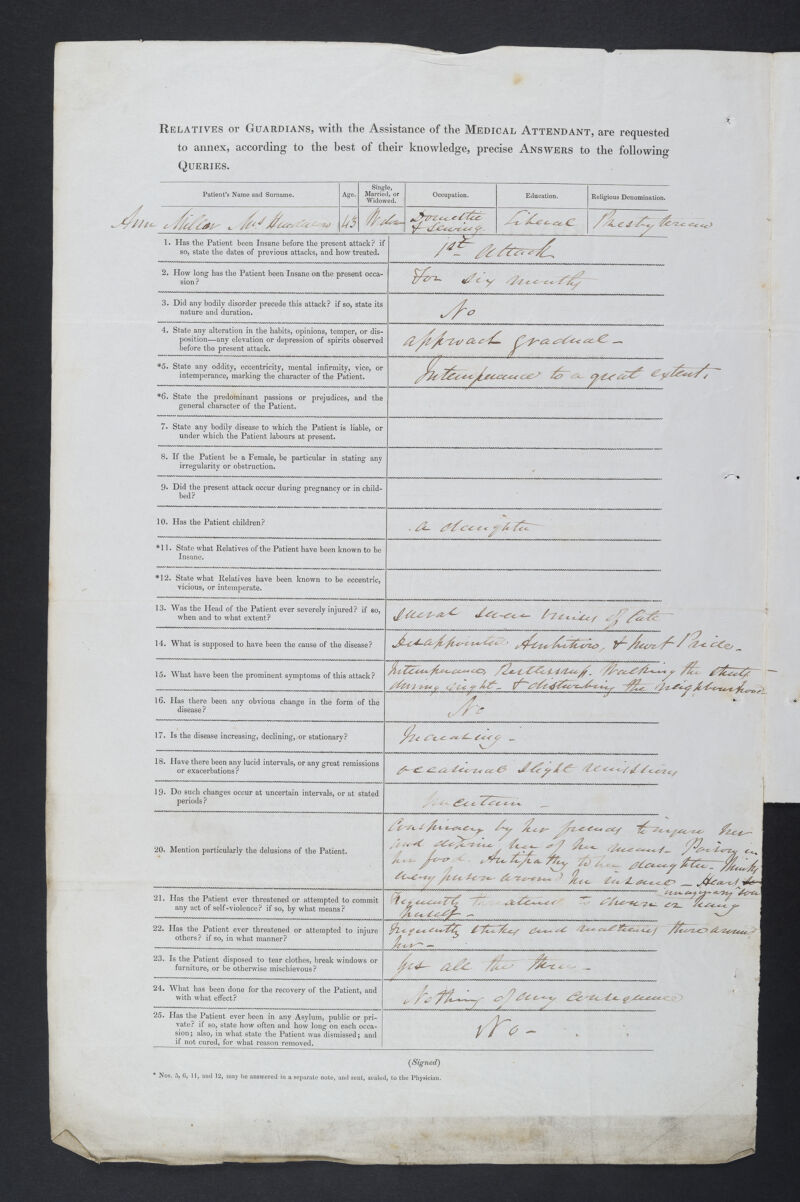 RELATIVES or GUARDIANS, with the Assistance of the MEDICAL ATTENDANT, are requested
to annex, according to the best of their knowledge, precise ANSWERS to the following
QUERIES.
Patient's Name and Surname. Age. Single, Married, or Widowed. Occupation. Education. Religious Denomination.
Ann Millar Mrs 43 Wdw Domestic & Sewing Liberal Presbyterian
1. Has the Patient been Insane before the present attack? if
so, state the dates of previous attacks, and how treated.
1st attack
2. How long has the Patient been Insane on the present occa-
sion?
For six months
3. Did any bodily disorder precede this attack? if so, state its
nature and duration.
No
4. State any alteration in the habits, opinions, temper, or dis-
position—any elevation or depression of spirits observed
before the present attack.
approach gradual -
*5. State any oddity, eccentricity, mental infirmity, vice, or
intemperance, marking the character of the Patient.
Intemperance to a great extent.
*6. State the predominant passions or prejudices, and the
general character of the Patient.
7. State any bodily disease to which the Patient is liable, or
under which the Patient labours at present.
8. If the Patient be a Female, be particular in stating any
irregularity or obstruction.
9. Did the present attack occur during pregnancy or in child-
bed?
10. Has the Patient children?
a daughter
*11. State what Relatives of the Patient have been known to be
Insane.
*12. State what Relatives have been known to be eccentric,
vicious, or intemperate.
13. Was the Head of the Patient ever severely injured? if so,
when and to what extent?
several severe bruises of late
14. What is supposed to have been the cause of the disease?
Disappointed Ambition, & hurt Pride -
15. What have been the prominent symptoms of this attack?
Intemperance, Restlessness. Walking the streets
during night - & disturbing the neighbourhood
16. Has there been any obvious change in the form of the
disease?
No
17. Is the disease increasing, declining, or stationary?
Increasing -
18. Have there been any lucid intervals, or any great remissions
or exacerbations?
occasional slight remissions
19. Do such changes occur at uncertain intervals, or at stated
periods?
uncertain -
20. Mention particularly the delusions of the Patient.
Conspiracy by her friends to injure her
and deprive her of her means. Poison in
her food. Antipathy to her daughter. Thinks
every person around her insane - Hears
imaginary
21. Has the Patient ever threatened or attempted to commit
any act of self-violence? if so, by what means?
Frequently threatened to drown or hang
herself -
22. Has the Patient ever threatened or attempted to injure
others? if so, in what manner?
Frequently strikes and maltreats those around
her -
23. Is the Patient disposed to tear clothes, break windows or
furniture, or be otherwise mischievous?
Yes all the three -
24. What has been done for the recovery of the Patient, and
with what effect?
Nothing of any consequence
25. Has the Patient ever been in any Asylum, public or pri-
vate? if so, state how often and how long on each occa-
sion; also, in what state the Patient was dismissed; and
if not cured, for what reason removed.
No -
(Signed)
* Nos. 5, 6, 11, and 12, may be answered in a separate note, and sent, sealed, to the Physician.